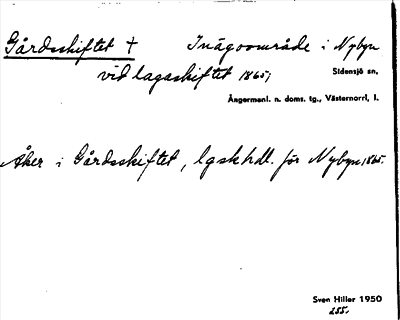 Gårdsskiftet † Inägoområde i Nybyn
vid lagaskiftet 1865;
Sidensjö sn,
Ångermanl. n. doms. tg., Västernorrl, l.
Åker i Gårdsskiftet, lgskhdl. för Nybyn 1865.
Sven Hiller 1950
255.